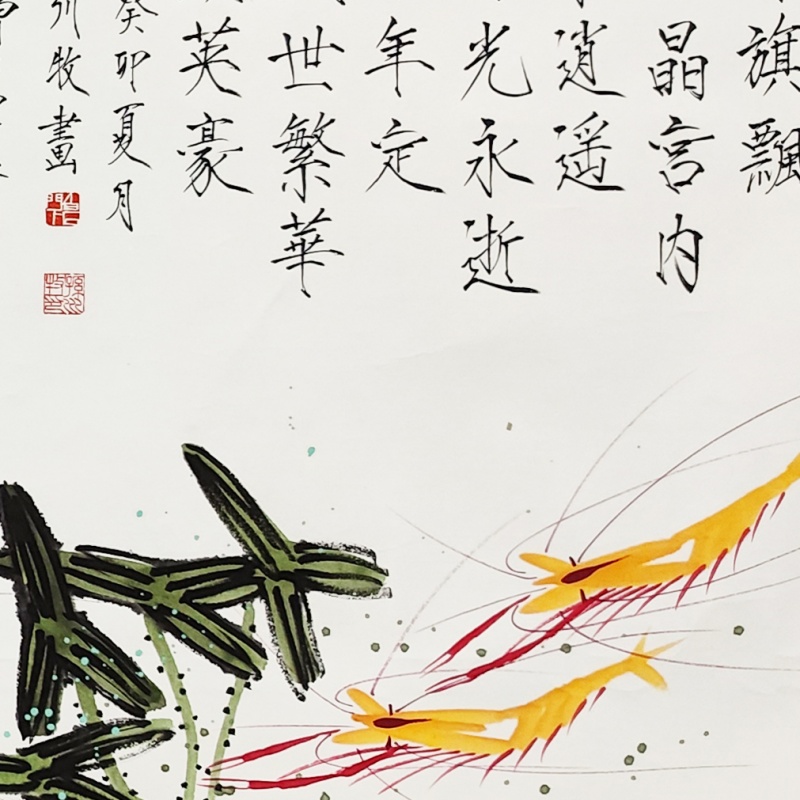 旗飄
晶宮內
逍遥
光永逝
年定
世繁華
英豪
癸卯夏月
州牧畫